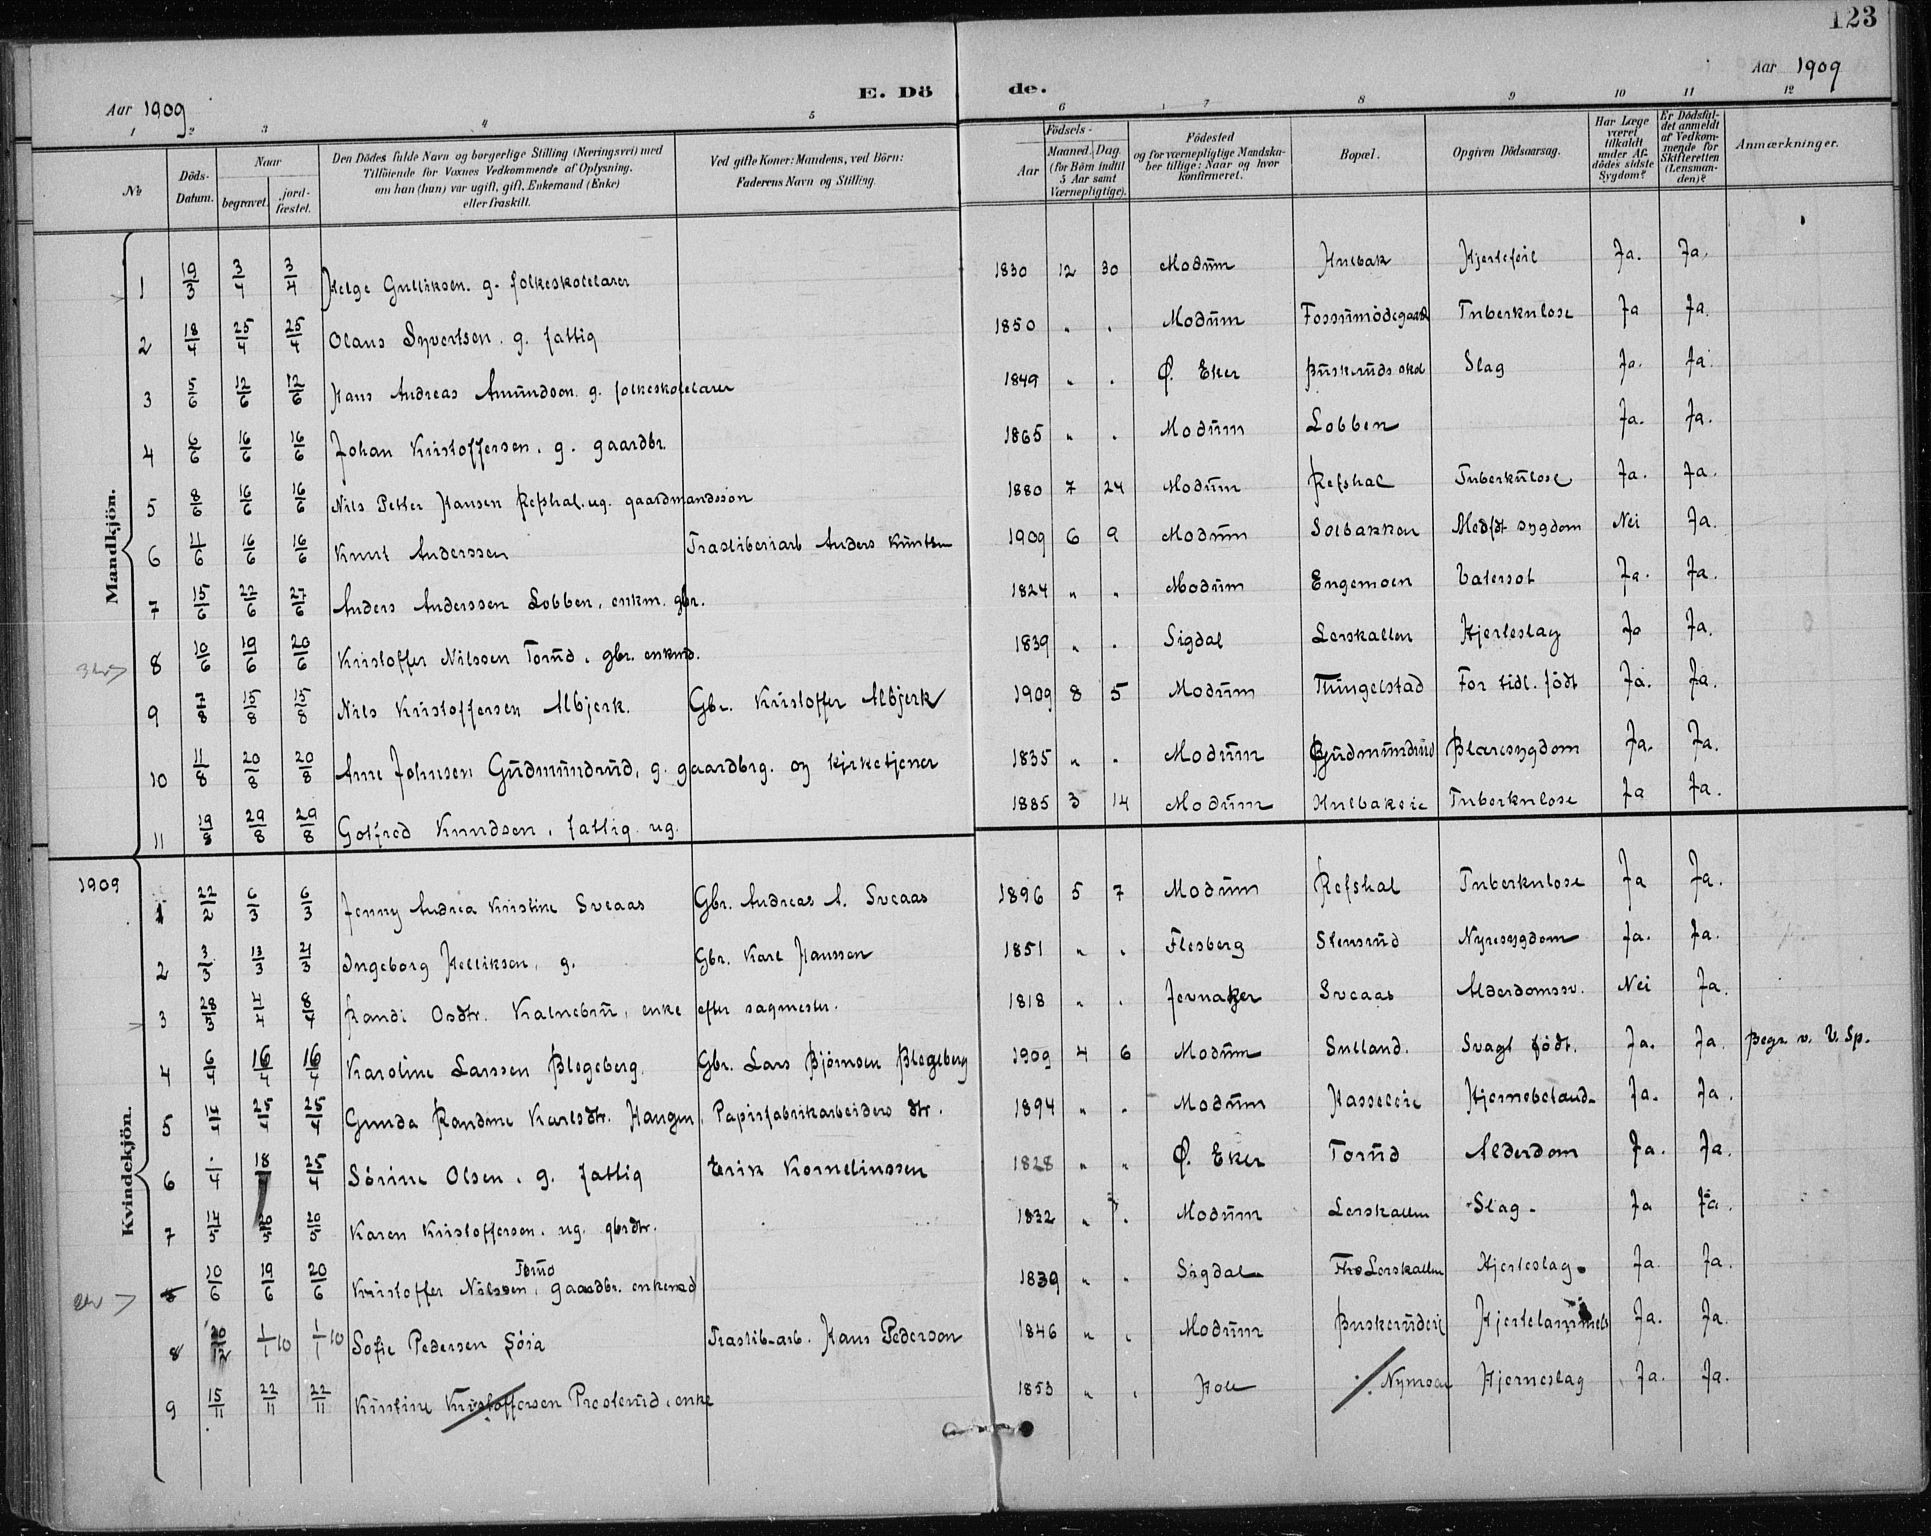 123
Aar 1909
E. Dö de.
Aar 1909
1 2 3 4 5 6 7 8 9 10 11 12
No
Döds-Datum.
Naar
begravet.
jord-fæstet.
Den Dödes fulde Navn og borgerlige Stilling (Næringsvei) med
Tilföiende for Voxnes Vedkommende af Oplysning,
om han (hun) var ugift, gift, Enkemand (Enke)
eller fraskilt.
Ved gifte Koner: Mandens, ved Börn:
Faderens Navn og Stilling.
Födsels-
Aar
Maaned. Dag
(for Börn indtil
5 Aar samt
Værnepligtige).
Födested
og for værnepligtige Mandska-
ber tillige: Naar og hvor
konfirmeret.
Bopæl.
Opgiven Dödsaarsag.
Har Læge
været
tilkaldt
under Af-
dödes sidste
Sygdom?
Er Dödsfal-
det anmeldt
af Vedkom-
mende for
Skifteretten
(Lensman-
den)?
Anmærkninger.
Mandkjön.
1 19/3 3/4 3/4 Helge Gulliksen. g. folkeskolelærer 1830 12 30 Modum Hulbak Hjertefeil Ja. Ja.
2 18/4 25/4 25/4 Olaus Syvertsen. g. fattig 1850 " " Modum Fossumødegaard Tuberkulose Ja Ja.
3 5/6 12/6 12/6 Hans Andreas Amundsen. g. folkeskolelærer 1849 " " Ø. Eker Buskeruds skol Slag Ja. Ja.
4 6/6 16/6 16/6 Johan Kristoffersen. g. gaardbr. 1865 " " Modum Lobben Ja. Ja.
5 8/6 16/6 16/6 Nils Petter Hansen Refshal. ug. gaardmandssøn 1880 7 24 Modum Refshal Tuberkulose Ja. Ja.
6 11/6 16/6 16/6 Knut Anderssen Træsliberiarb Anders Knutsen 1909 6 9 Modum Solbakken Medfdt sygdom Nei Ja.
7 15/6 27/6 27/6 Anders Anderssen Lobben, enkm. gbr. 1824 " " Modum Engemoen Ja. Ja.
8 10/6 19/6 20/6 Kristoffer Nilssen Torud, gbr. enkmd. 1839 " " Sigdal Lerskallen Hjerteslag Ja Ja.
9 7/8 15/8 15/8 Nils Kristoffersen Albjerk. Gbr. Kristoffer Albjerk 1909 8 5 Modum Thingelstad For tidl. født Ja. Ja.
10 11/8 20/8 20/8 Arne Johnsen Gudmundrud, g. gaardbrg. og kirketjener 1835 " " Modum Gudmundrud Blæresygdom Ja. Ja.
11 19/8 29/8 29/8 Gotfred Knudsen, fattig ug. 1885 3 14 Modum Hulbakeie Tuberkulose Ja Ja.
1909
Kvindekjön.
1 22/2 6/3 6/3 Jenny Andrea Kristine Sveaas Gbr. Andreas A. Sveaas 1896 5 7 Modum Refshal Tuberkulose Ja Ja.
2 3/3 13/3 21/3 Ingeborg Helliksen, g. Gbr. Karl Hanssen 1851 " " Flesberg Stensrud Nyresygdom Ja. Ja.
3 28/3 4/4 8/4 Randi Osdtr. Kalnebru, enke efter sagmester. 1818 " " Jevnaker Sveaas Alderdomssv. Nei Ja.
4 6/4 16/4 16/4 Karoline Larssen Blegeberg. Gbr. Lars Bjørnsen Blegeberg 1909 4 6 Modum Sulland. Svagt født. Ja. Ja. Begr. v. V. Sp.
5 14/4 25/4 25/4 Gunda Randine Karlsdtr. Haugen, Papirfabrikarbeiders dtr. 1894 " " Modum Hasseleie Hjernebetænd. Ja. Ja.
6 /4 18/4 25/4 Sørine Olsen, g. fattig Erik Kornelinssen 1828 " " Ø. Eker Torud Alderdom Ja. Ja.
7 14/5 20/5 20/5 Karen Kristoffersen. ug. gbrdtr. 1832 " " Modum Lerskallen Slag. Ja Ja.
8 10/6 19/6 20/6 Kristoffer Nilssen Torud, gaardbr. enkemd 1839 " " Sigdal Lerskallen Hjerteslag. Ja. Ja.
8 20/12 1/1 10 1/1 10 Sofie Pedersen Søia Træslib.arb. Hans Pederson 1846 " " Modum Buskerudeie Hjertelammels Ja. Ja.
9 15/11 22/11 22/11 Kristine Kristoffersen Presterud, enke 1853 " " Hole Nymoen Hjerneslag Ja. Ja.